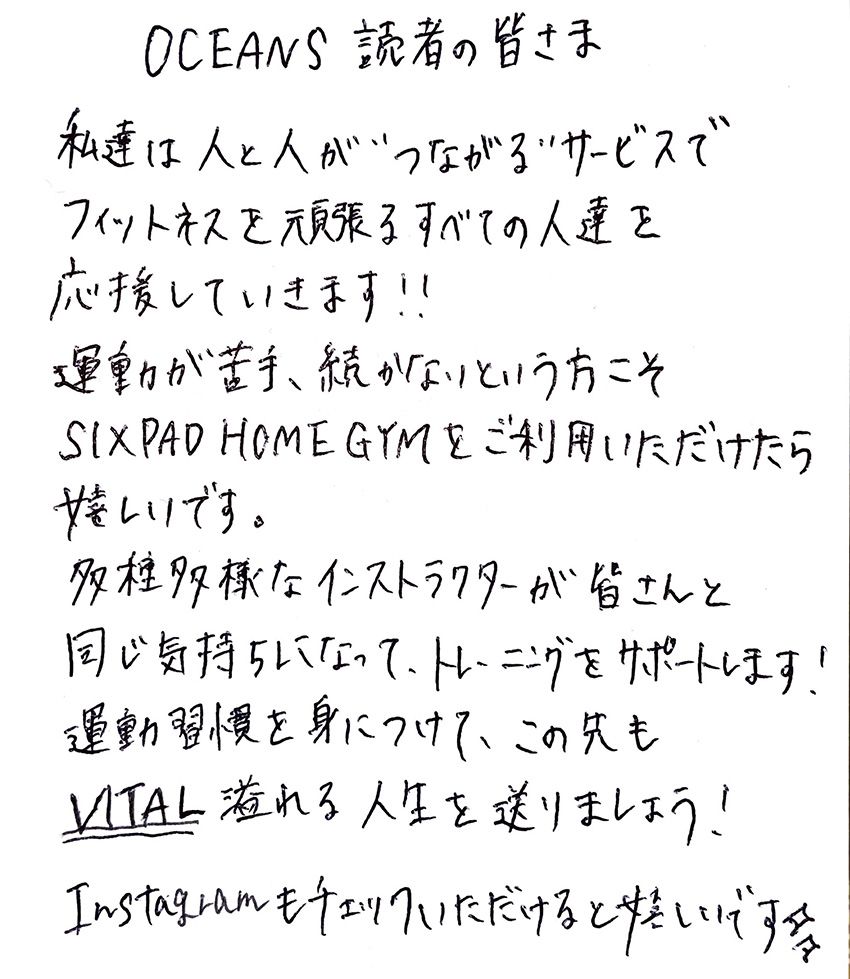 OCEANS 読者の皆さま
私達は人と人が"つながる"サービスで
フィットネスを頑張るすべての人達を
応援していきます!!
運動が苦手、続かないという方こそ
SIXPAD HOME GYMをご利用いただけたら
嬉しいです。
多種多様なインストラクターが皆さんと
同じ気持ちになって、トレーニングをサポートします!
運動習慣を身につけて、この先も
VITAL溢れる人生を送りましょう!
Instagramもチェックいただけると嬉しいです☆☆